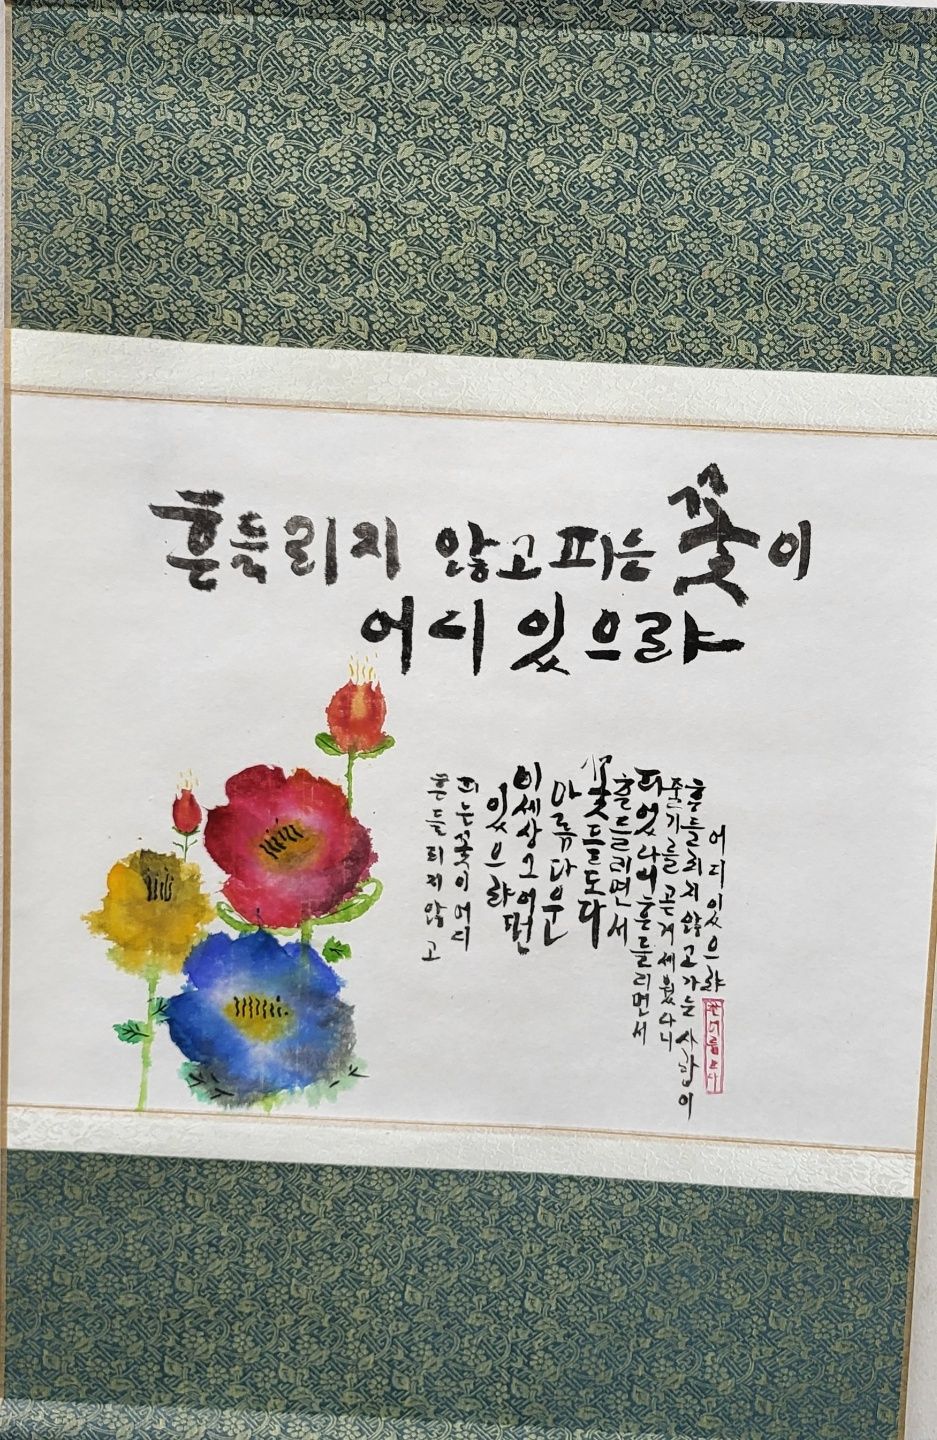 흔들리지 않고 피는 꽃이
어디 있으랴
흔들리지 않고
피는 꽃이 어디
있으랴
이 세상 그 어떤
아름다운
꽃들도 다
흔들리면서
피었나니 흔들리면서
줄기를 곧게 세웠나니
흔들리지 않고 가는 사람이
어디 있으랴